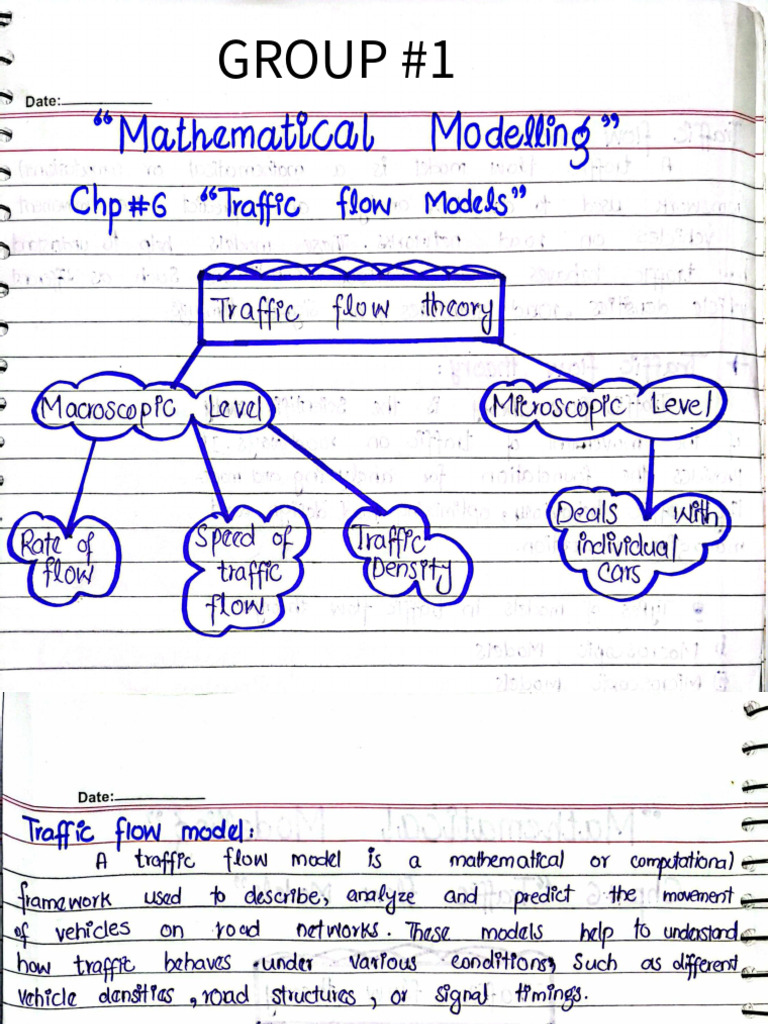 GROUP #1
Date:
"Mathematical Modelling"
Chp #6 "Traffic flow Models"
Traffic flow theory
Macroscopic Level
Microscopic Level
Rate of
flow
Speed of
traffic
flow
Traffic
Density
Deals with
individual
cars
Date:
Traffic flow model:
A traffic flow model is a mathematical or computational
framework used to describe, analyze and predict the movement
of vehicles on road networks. These models help to understand
how traffic behaves under various conditions, such as different
vehicle densities, road structures, or signal timings.